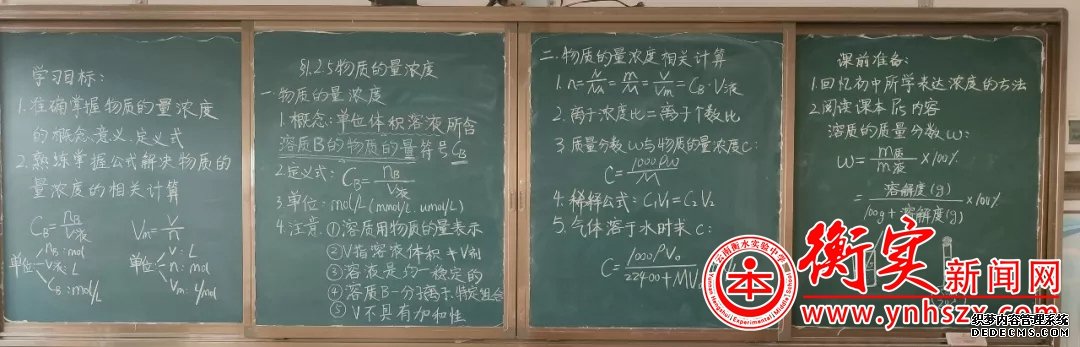 学习目标：
1.准确掌握物质的量浓度
的概念.意义.定义式
2.熟练掌握公式解决物质的
量浓度的相关计算
C_B = n_B/V液
V_m = V/n
单位
n_B: mol
V液: L
C_B: mol/L
单位
V: L
n: mol
V_m: L/mol
§1.2.5物质的量浓度
一.物质的量浓度
1.概念:单位体积溶液所含
溶质B的物质的量 符号C_B
2.定义式: C_B = n_B/V液
3.单位: mol/L (mmol/L. umol/L)
4.注意 ①溶质用物质的量表示
②V指溶液体积 ≠V剂
③溶液是均一稳定的
④溶质B-分子.离子.特定组合
⑤V不具有加和性
二.物质的量浓度相关计算
1. n = N/N_A = m/M = V/V_m = C_B·V液
2.离子浓度比=离子个数比
3.质量分数w与物质的量浓度C:
C = 1000ρw/M
4.稀释公式: C₁V₁=C₂V₂
5.气体溶于水时求C:
C = 1000ρV₀/22400+MV₀
课前准备:
1.回忆初中所学表达浓度的方法
2.阅读课本 内容
溶质的质量分数w:
w = m质/m液 ×100%
= 溶解度(g)/100g+溶解度(g) ×100%
云南衡水实验中学
Yunnan Hengshui Experimental Middle
衡实新闻网
www.ynhszx
织梦内容管理系统
DEDECMS.COM